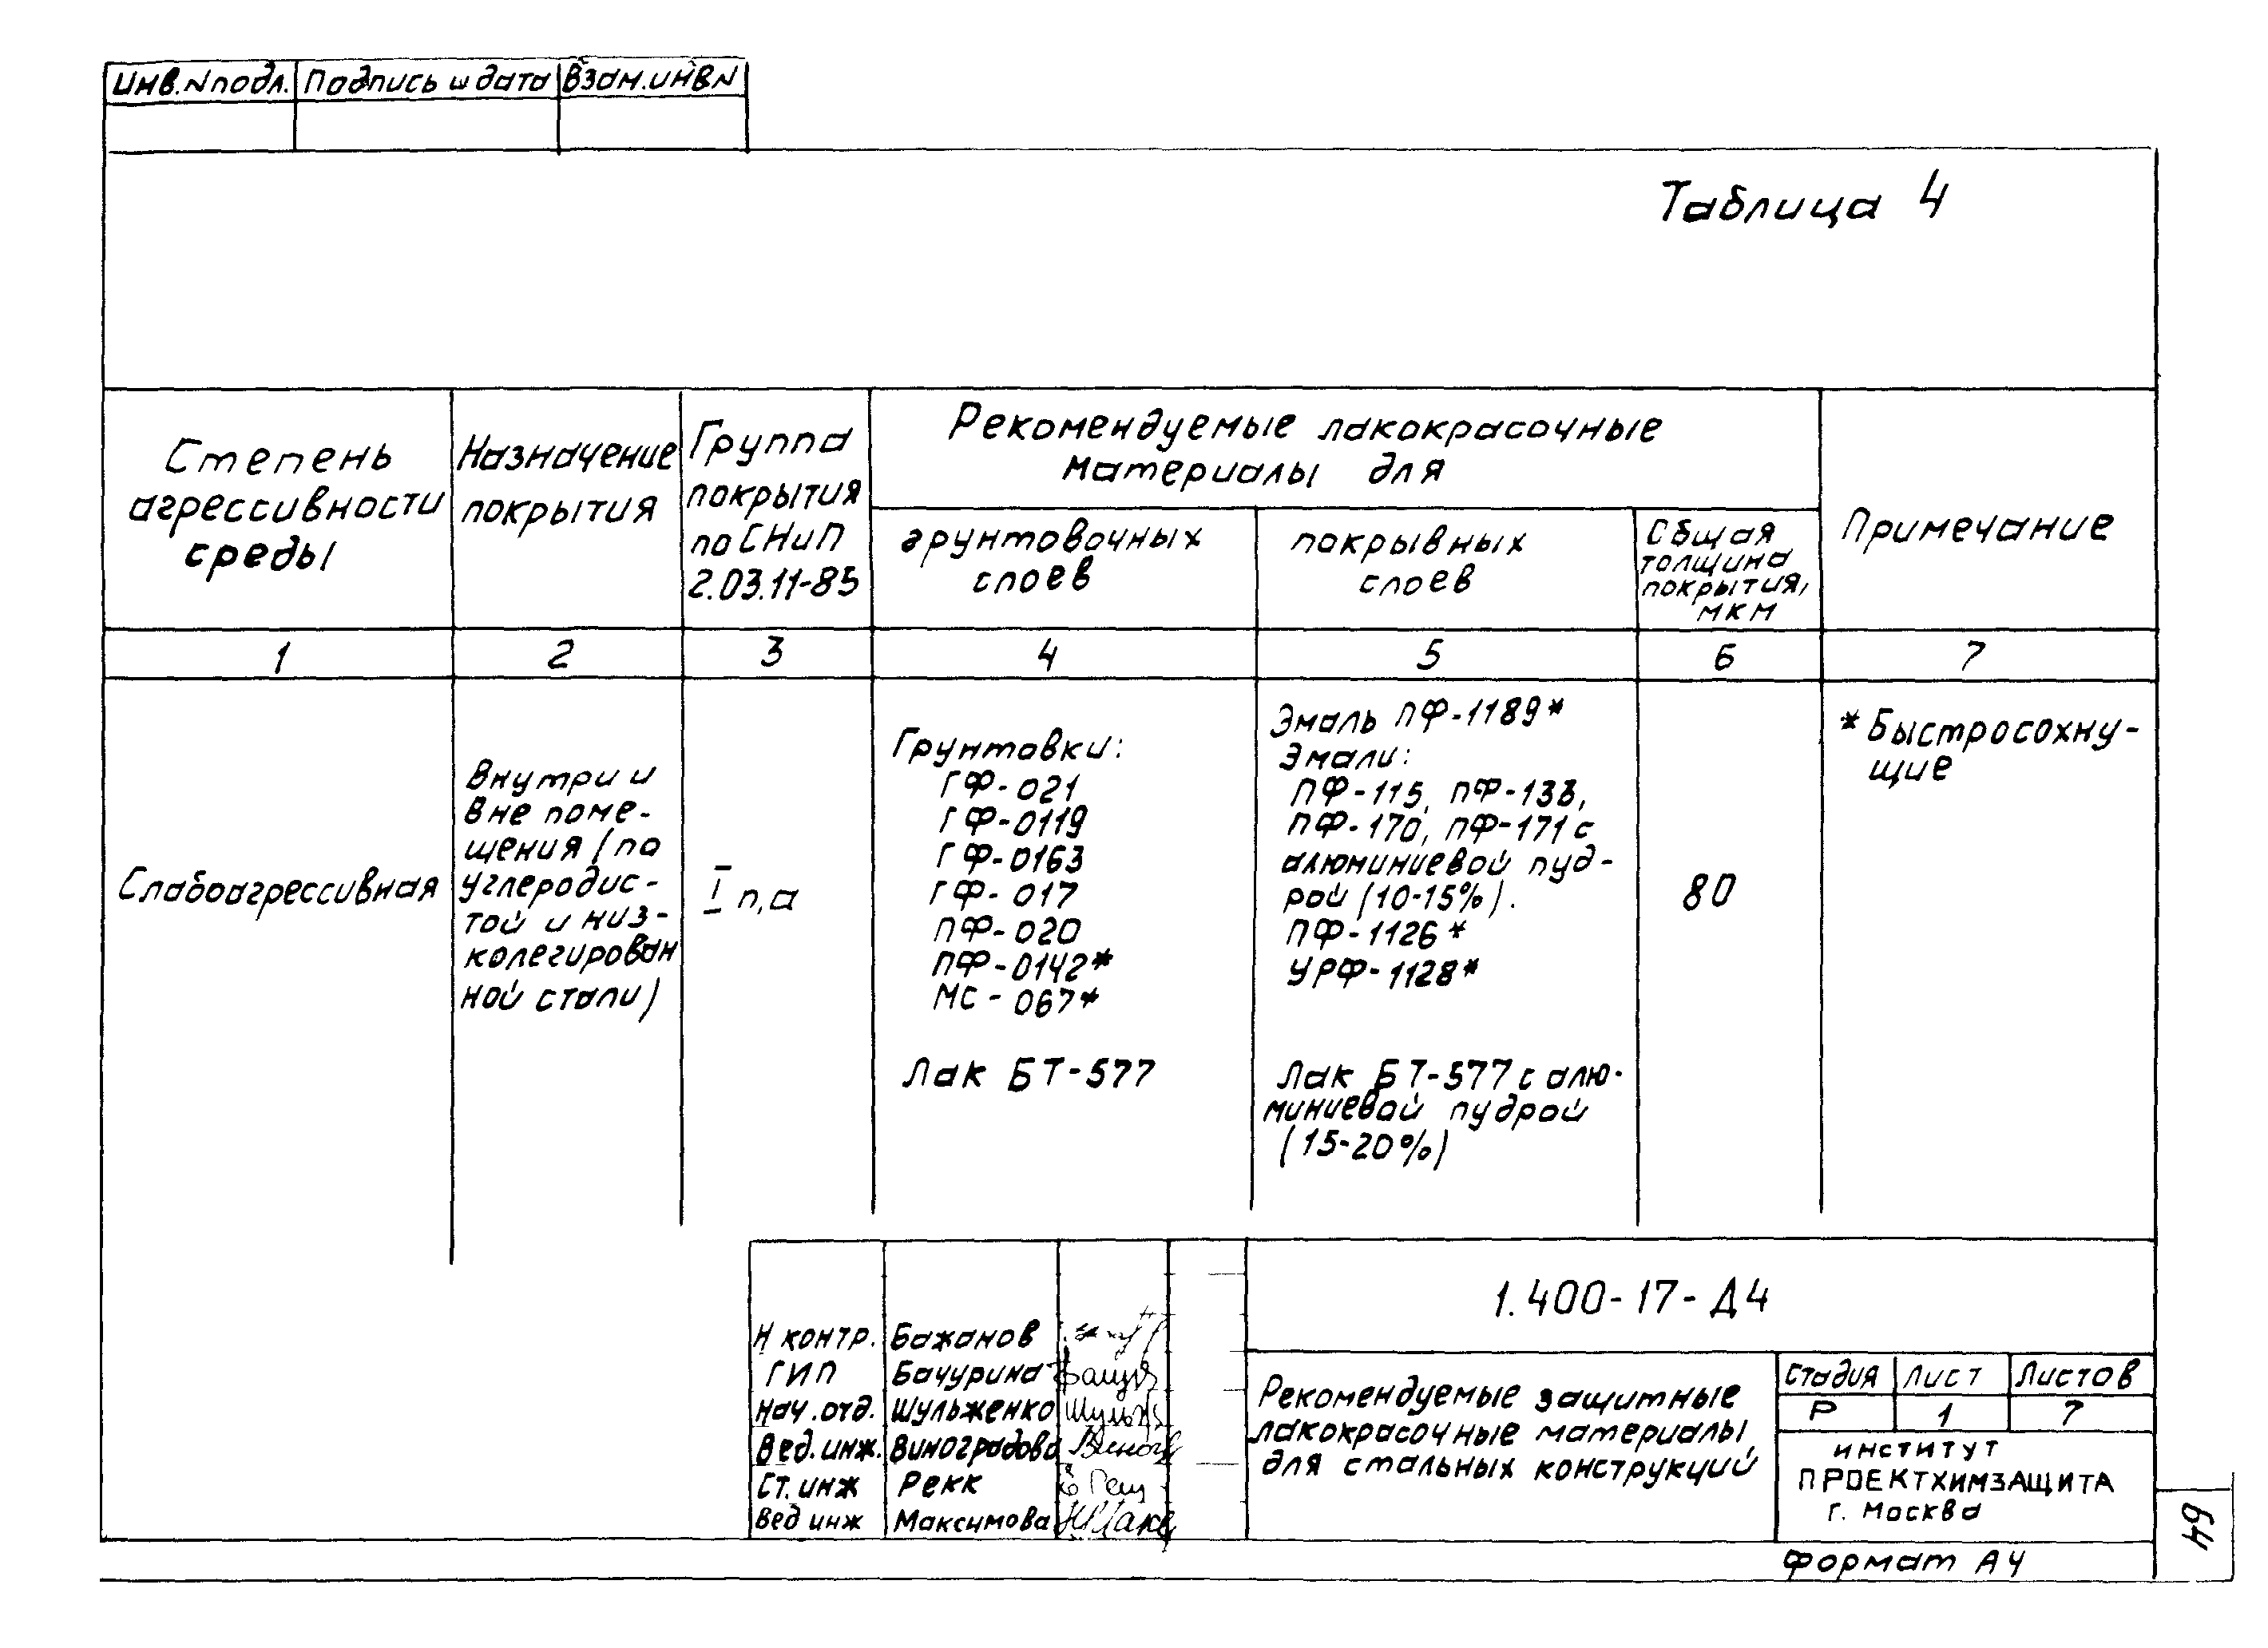 Инв.N подл. Подпись и дата Взам.инв N
Таблица 4
Степень
агрессивности
среды
Назначение
покрытия
Группа
покрытия
по СНиП
2.03.11-85
Рекомендуемые лакокрасочные
материалы для
грунтовочных
слоев
покрывных
слоев
Общая
толщина
покрытия,
мкм
Примечание
1 2 3 4 5 6 7
Слабоагрессивная
Внутри и
вне поме-
щения (по
углеродис-
той и низ-
колегирован
ной стали)
I п,а
Грунтовки:
ГФ-021
ГФ-0119
ГФ-0163
ГФ-017
ПФ-020
ПФ-0142*
МС-067*
Лак БТ-577
Эмаль ПФ-1189*
Эмали:
ПФ-115, ПФ-133,
ПФ-170, ПФ-171 с
алюминиевой пуд-
рой (10-15%).
ПФ-1126*
УРФ-1128*
Лак БТ-577 с алю-
миниевой пудрой
(15-20%)
80
* Быстросохну-
щие
Н контр. Бажанов
ГИП Бачурина
Нач.отд. Шульженко
Вед.инж. Виноградова
Ст.инж Рекк
Вед инж Максимова
1.400-17-Д4
Рекомендуемые защитные
лакокрасочные материалы
для стальных конструкций
Стадия Лист Листов
Р 1 7
институт
ПРОЕКТХИМЗАЩИТА
г. Москва
формат А4
64